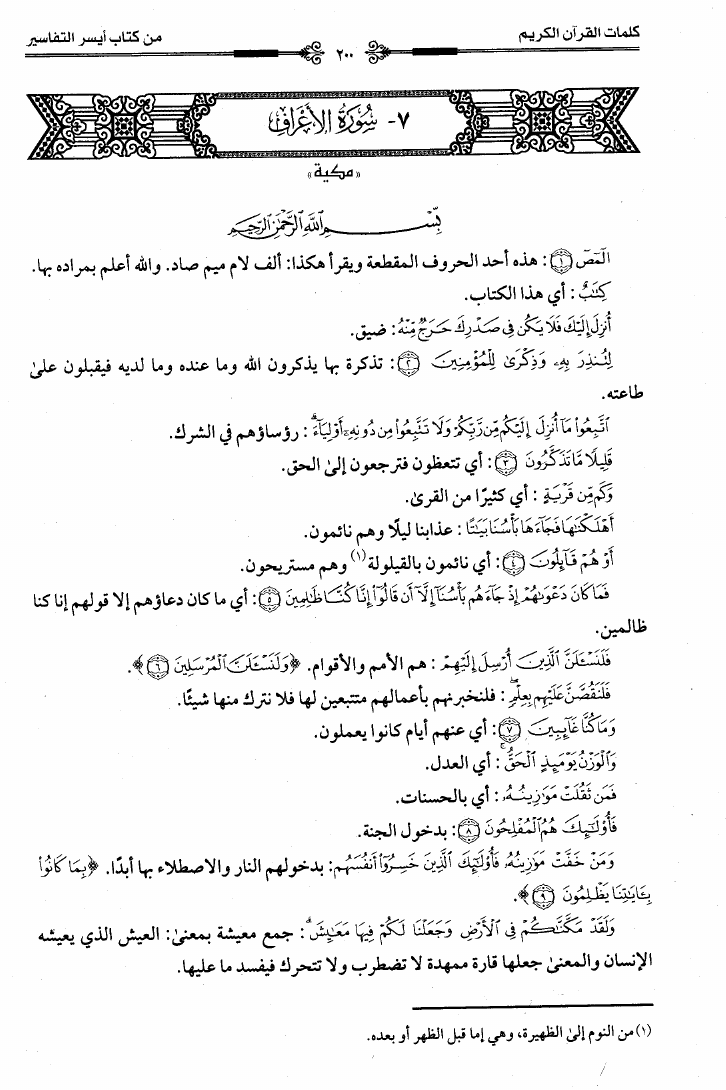 كلمات القرآن الكريم
٢٠٠
من كتاب أيسر التفاسير
٧- سُورَةُ الأَعْرَافِ
«مكية»
بِسْمِ اللَّهِ الرَّحْمَٰنِ الرَّحِيمِ
الٓمٓصٓ ١: هذه أحد الحروف المقطعة ويقرأ هكذا: ألف لام ميم صاد. والله أعلم بمراده بها.
كِتَٰبٌ: أي هذا الكتاب.
أُنزِلَ إِلَيْكَ فَلَا يَكُن فِى صَدْرِكَ حَرَجٌ مِّنْهُ: ضيق.
لِتُنذِرَ بِهِۦ وَذِكْرَىٰ لِلْمُؤْمِنِينَ ٢: تذكرة بها يذكرون الله وما عنده وما لديه فيقبلون علىٰ
طاعته.
ٱتَّبِعُوا۟ مَآ أُنزِلَ إِلَيْكُم مِّن رَّبِّكُمْ وَلَا تَتَّبِعُوا۟ مِن دُونِهِۦٓ أَوْلِيَآءَ: رؤساؤهم في الشرك.
قَلِيلًا مَّا تَذَكَّرُونَ ٣: أي تتعظون فترجعون إلىٰ الحق.
وَكَم مِّن قَرْيَةٍ: أي كثيرًا من القرىٰ.
أَهْلَكْنَٰهَا فَجَآءَهَا بَأْسُنَا بَيَٰتًا: عذابنا ليلًا وهم نائمون.
أَوْ هُمْ قَآئِلُونَ ٤: أي نائمون بالقيلولة(١) وهم مستريحون.
فَمَا كَانَ دَعْوَىٰهُمْ إِذْ جَآءَهُم بَأْسُنَآ إِلَّآ أَن قَالُوٓا۟ إِنَّا كُنَّا ظَٰلِمِينَ ٥: أي ما كان دعاؤهم إلا قولهم إنا كنا
ظالمين.
فَلَنَسْـَٔلَنَّ ٱلَّذِينَ أُرْسِلَ إِلَيْهِمْ: هم الأمم والأقوام. ﴿وَلَنَسْـَٔلَنَّ ٱلْمُرْسَلِينَ ٦﴾.
فَلَنَقُصَّنَّ عَلَيْهِم بِعِلْمٍ: فلنخبرنهم بأعمالهم متتبعين لها فلا نترك منها شيئًا.
وَمَا كُنَّا غَآئِبِينَ ٧: أي عنهم أيام كانوا يعملون.
وَٱلْوَزْنُ يَوْمَئِذٍ ٱلْحَقُّ: أي العدل.
فَمَن ثَقُلَتْ مَوَٰزِينُهُۥ: أي بالحسنات.
فَأُو۟لَٰٓئِكَ هُمُ ٱلْمُفْلِحُونَ ٨: بدخول الجنة.
وَمَنْ خَفَّتْ مَوَٰزِينُهُۥ فَأُو۟لَٰٓئِكَ ٱلَّذِينَ خَسِرُوٓا۟ أَنفُسَهُم: بدخولهم النار والاصطلاء بها أبدًا. ﴿بِمَا كَانُوا۟
بِـَٔايَٰتِنَا يَظْلِمُونَ ٩﴾.
وَلَقَدْ مَكَّنَّٰكُمْ فِى ٱلْأَرْضِ وَجَعَلْنَا لَكُمْ فِيهَا مَعَٰيِشَ: جمع معيشة بمعنىٰ: العيش الذي يعيشه
الإنسان والمعنىٰ جعلها قارة ممهدة لا تضطرب ولا تتحرك فيفسد ما عليها.
(١) من النوم إلىٰ الظهيرة، وهي إما قبل الظهر أو بعده.